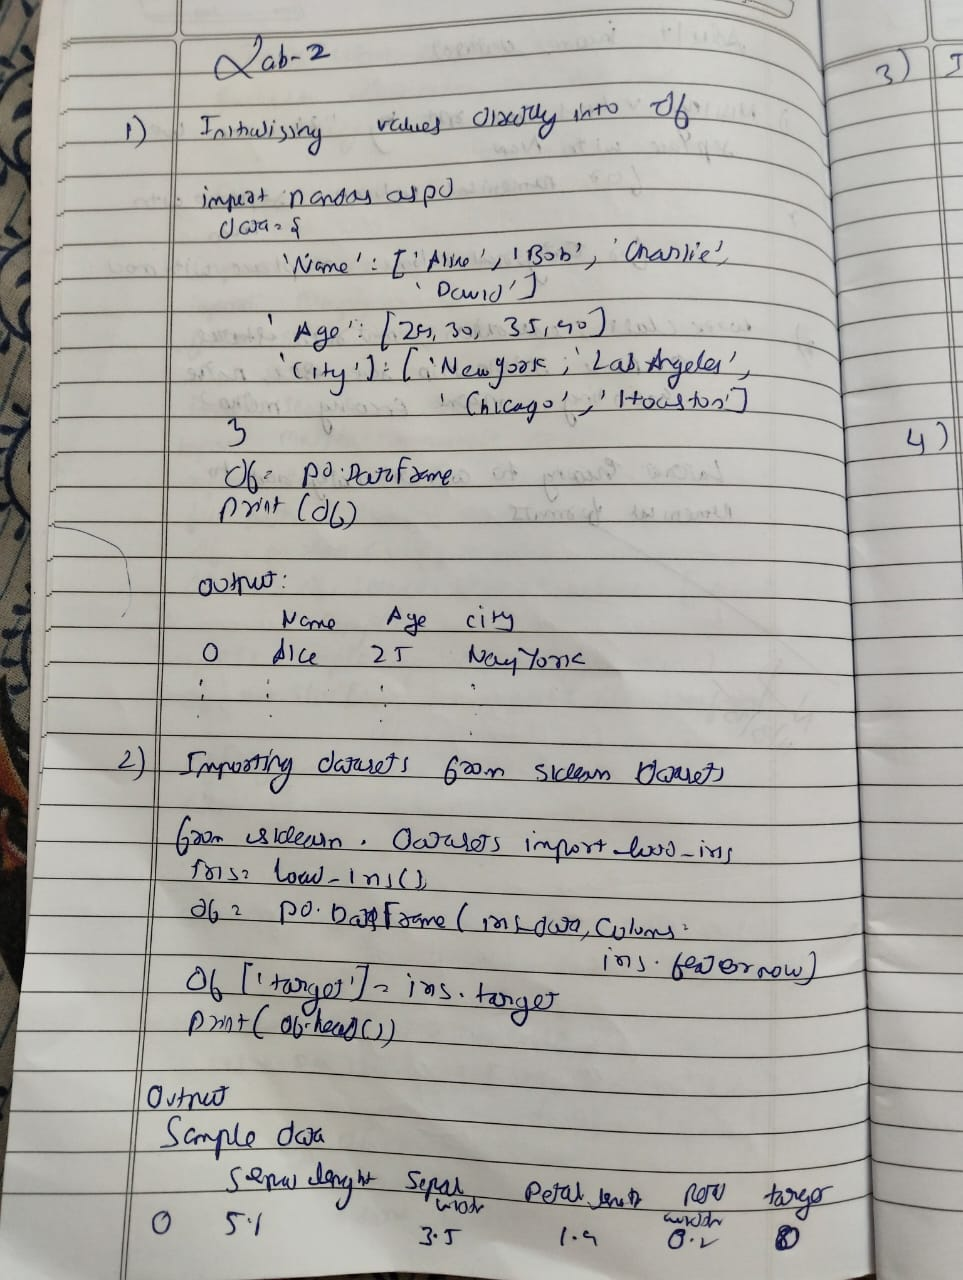 Lab-2
1) Initialising values directly into df
import pandas as pd
data = {
'Name' : ['Alice', 'Bob', 'Charlie',
'David']
'Age' : [25, 30, 35, 40]
'City'] : ['New york', 'Los Angeles',
'Chicago', 'Houston']
}
df = pd.DataFrame
print (df)
output:
Name Age city
0 Alice 25 New York
: : : :
2) Importing datasets from sklearn Datasets
from sklearn. Datasets import load-iris
iris = load-iris()
df = pd.DataFrame (iris.data, Colums =
iris.
df ['target'] = iris.target
print( df.head())
Output
Sample data
Sepal lenght Sepal width Petal length Petal width target
0 5.1 3.5 1.4 0.2 0
3) I
4)